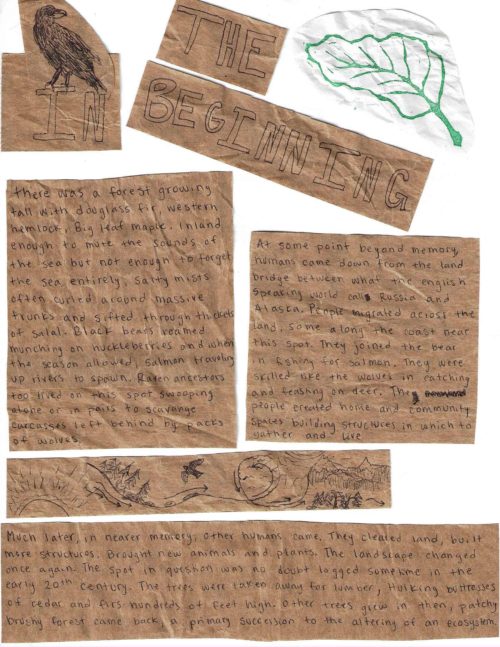 IN
THE
BEGINNING
there was a forest growing
tall with douglass fir, western
hemlock, Big leaf maple. Inland
enough to mute the sounds of
the sea but not enough to forget
the sea entirely. Salty mists
often curled around massive
trunks and sifted through thickets
of salal. Black bears roamed
munching on huckleberries and when
the season allowed, salmon traveling
up rivers to spawn. Raven ancestors
too lived on this spot swooping
alone or in pairs to scavange
carcasses left behind by packs
of wolves.
At some point beyond memory,
humans came down from the land
bridge between what the english
speaking world calls Russia and
Alaska. People migrated across the
land, some along the coast near
this spot. They joined the bear
in fishing for salmon. They were
skilled like the wolves in catching
and feasting on deer. The
people created home and community
spaces building structures in which to
gather and live
Much later, in nearer memory, other humans came. They cleared land, built
more structures. Brought new animals and plants. The landscape changed
once again. The spot in question was no doubt logged sometime in the
early 20th century. The trees were taken away for lumber, hulking buttresses
of cedar and firs hundreds of feet high. Other trees grew in then, patchy
brushy forest came back a primary succession to the altering of an ecosystem